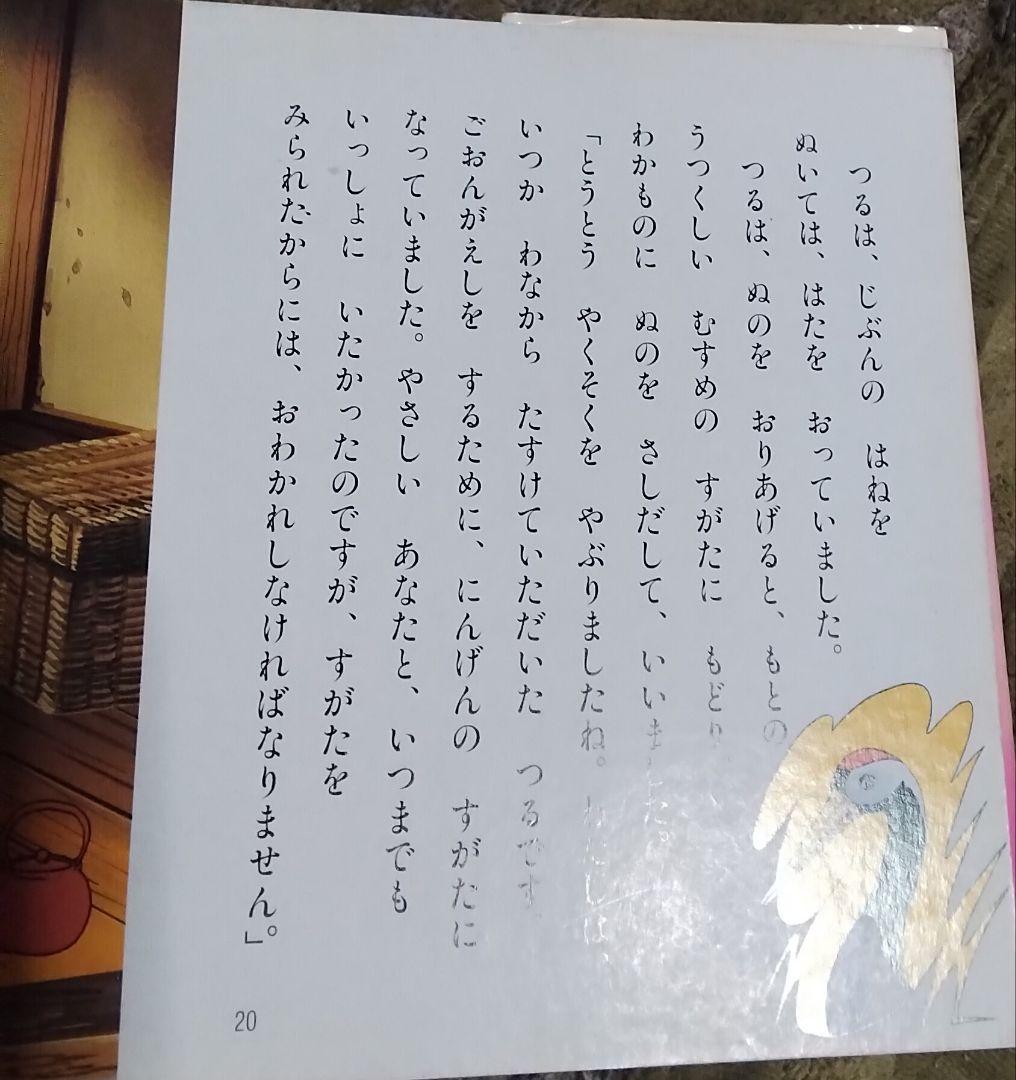 つるは、じぶんの はねを
ぬいては、はたを おっていました。
つるは、ぬのを おりあげると、もとの
うつくしい むすめの すがたに もどり、
わかものに ぬのを さしだして、いいました。
「とうとう やくそくを やぶりましたね。わたしは、
いつか わなから たすけていただいた つるです。
ごおんがえしを するために、にんげんの すがたに
なっていました。やさしい あなたと、いつまでも
いっしょに いたかったのですが、すがたを
みられたからには、おわかれしなければなりません。」
20